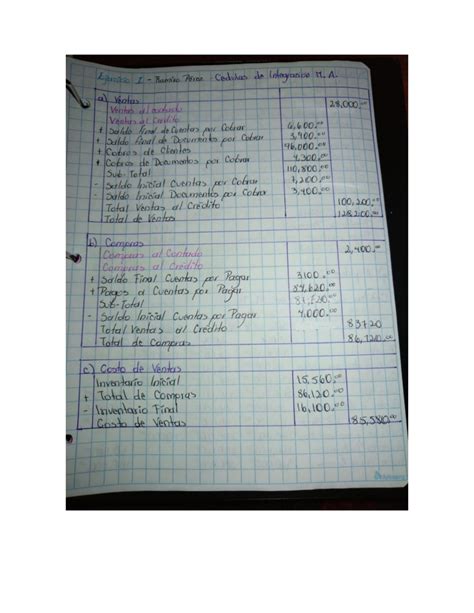 Ejercicio I - Ramiro Pérez Cédulas de Integración M. A.
a) Ventas
Ventas al contado 28,000.00
Ventas al Crédito
+ Saldo final de Cuentas por Cobrar 6,600.00
+ Saldo final de Documentos por Cobrar
+ Cobros de Clientes 96,000.00
+ Cobros de Documentos por Cobrar 4,300.00
Sub-Total 110,800.00
- Saldo Inicial Cuentas por Cobrar 7,200.00
- Saldo Inicial Documentos por Cobrar 3,400.00
Total Ventas al Crédito 100,200.00
Total de Ventas 128,200.00
b) Compras
Compras al Contado 2,400.00
Compras al Crédito
+ Saldo Final Cuentas por Pagar 3100.00
+ Pagos a Cuentas por Pagar 84,620.00
Sub-Total
- Saldo Inicial Cuentas por Pagar 4,000.00
Total Ventas al Crédito 83720
Total de Compras 86,120.00
c) Costo de Ventas
Inventario Inicial 15,560.00
+ Total de Compras 86,120.00
- Inventario Final 16,100.00
Costo de Ventas 85,580.00